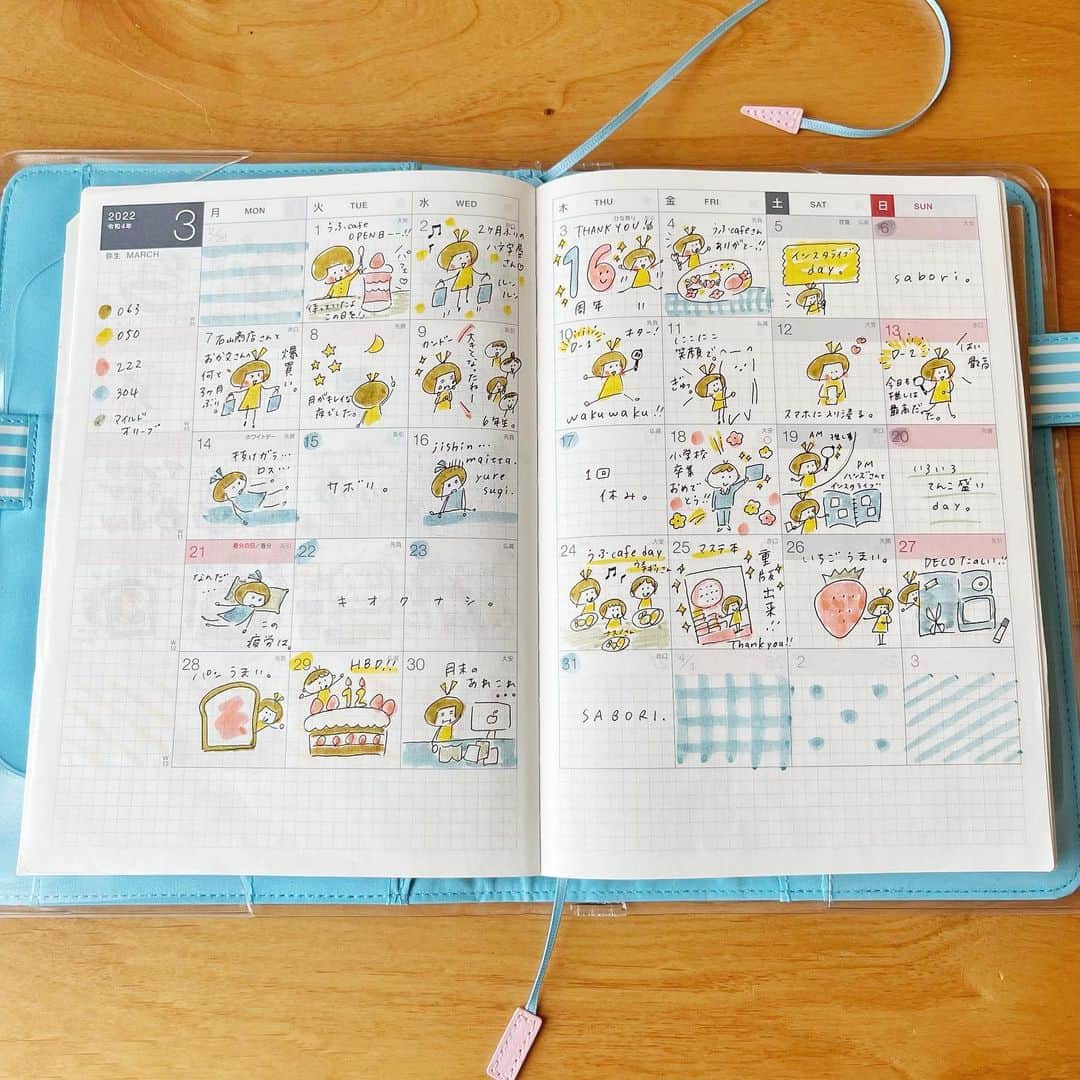 2022
令和4年
3
弥生 MARCH
月 MON
火 TUE
水 WED
木 THU
金 FRI
土 SAT
日 SUN
063
050
222
304
マイルド
オリーブ
1
うふcafe
OPEN日ーー!!
パフェ
待っていたよ
この日を!
2
2ヶ月ぶりの
八文字屋
さん
ルン
ルン
3
THANK YOU
16
周年
4
先負
うふcafeさん
ありがとー!!
5
インスタライブ
day.
6
大安
sabori.
7
石山商店さんと
おが丈さんの
何と
3ヶ月
ぶり。
爆買い。
8
先負
月がキレイな
夜でした。
9
カンドー
大きくなったねー
6年生。
10
先負
キター!
wakuwaku!!
11
にこにこ
笑顔でっ
ぎゅっ
12
大安
スマホに入り浸る。
13
はい
最高
今日も
推しは
最高だった。
14
ホワイトデー
先負
抜けがら…
ロス…
15
サボリ。
16
jishin…
maitta.
yure
sugi.
17
仏滅
1回
休み。
18
大安
小学校
卒業
おめで
とう!!
19
AM
推し事
PM
ハンズさんと
インスタライブ
20
先勝
いろいろ
てんこ盛り
day.
21
春分の日/春分
なんだ
この
疲労は。
22
先負
23
仏滅
キオクナシ。
24
大安
うふcafe day
25
マステ本
重版出来!!!
Thank you!!
26
先勝
いちごうまい。
27
DECOたのしい!!
28
パンうまい。
29
H.B.D!!
12
30
大安
月末の
あれこれ
...
31
SABORI.
4/1
2
3